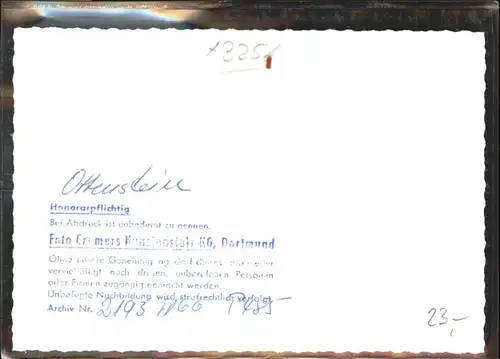 Ottenstein
Honorarpflichtig
Bei Abdruck ist unbedingt zu nennen:
Foto Cramers Kunstanstalt KG, Dortmund
Ohne unsere Genehmigung darf dieses weder
vervielfältigt noch dritten, unberufenen Personen
oder Firmen zugängig gemacht werden.
Unbefugte Nachbildung wird strafrechtlich verfolgt.
Archiv Nr. 2193 H66
23,-